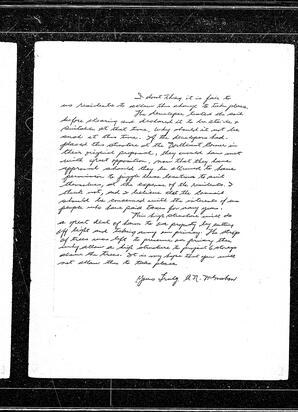 I dont think it is fair to
us residents to allow this change to take place.
The developer tested the soil
before planning and declared it to be
suitable at that time, why should it not be
used at this time. If the developers had
placed this structure at the
their original proposal, they would have met
with great opposition, now that they have
approval should they be allowed to have
permission to juggle these locations to suit
themselves, at the expense of the residents. I
think not, and I believe that the Council
should be concerned with the interests of
people who have paid taxes for many years.
This high structure will do
a great deal of harm to our property by cutting
off light and taking away our privacy. The strip
of trees was left to preserve our privacy
only allow a high structure to project
above the trees. It is my hope that you will
not allow this to take place.
Yours Truly